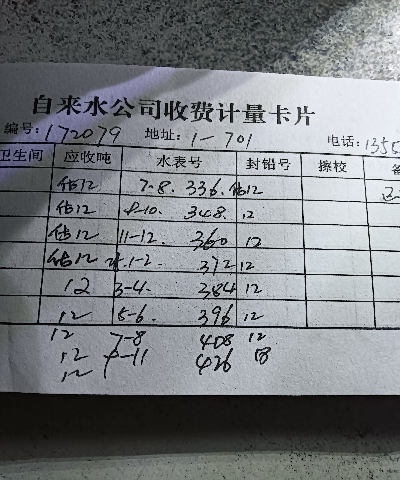 自来水公司收费计量卡片
编号: 172079 地址: 1-701 电话: 1355
卫生间 应收吨 水表号 封铅号 擦校 备
估12 7-8. 336. 估12
估12 8-10. 348. 12
估12 11-12. 360 12
估12 1-2. 372 12
12 3-4. 384 12
12 5-6. 396 12
12 7-8 408 12
12 9-11 426 18
12